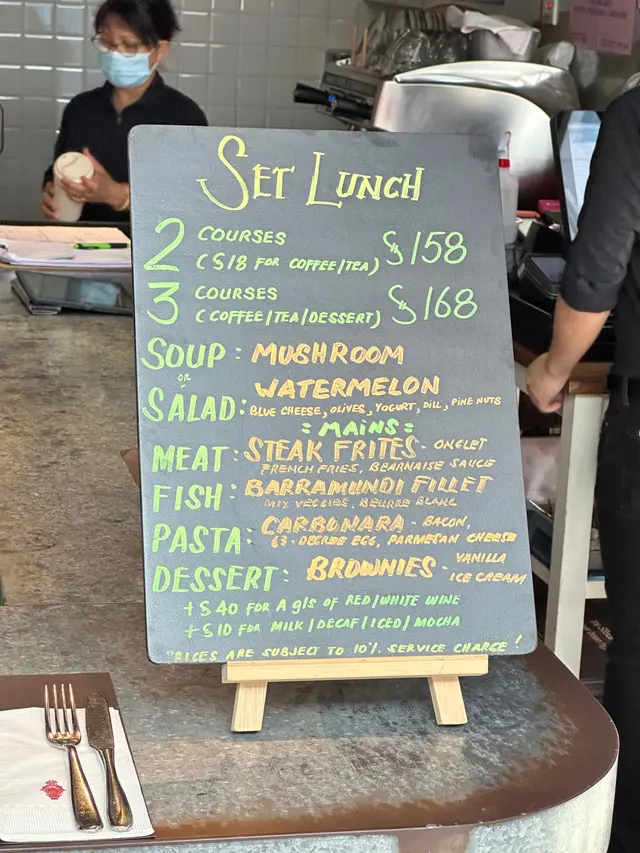 SET LUNCH
2 COURSES $158
($18 FOR COFFEE/TEA)
3 COURSES $168
(COFFEE/TEA/DESSERT)
SOUP: MUSHROOM
OR
SALAD: WATERMELON
BLUE CHEESE, OLIVES, YOGURT, DILL, PINE NUTS
=MAINS=
MEAT: STEAK FRITES - ONGLET
FRENCH FRIES, BEARNAISE SAUCE
FISH: BARRAMUNDI FILLET
MIX VEGGIES, BEURRE BLANC
PASTA: CARBONARA - BACON,
63-DEGREE EGG, PARMESAN CHEESE
DESSERT: BROWNIES - VANILLA
ICE CREAM
+$40 FOR A gls OF RED/WHITE WINE
+$10 FOR MILK/DECAF/ICED/MOCHA
PRICES ARE SUBJECT TO 10% SERVICE CHARGE!